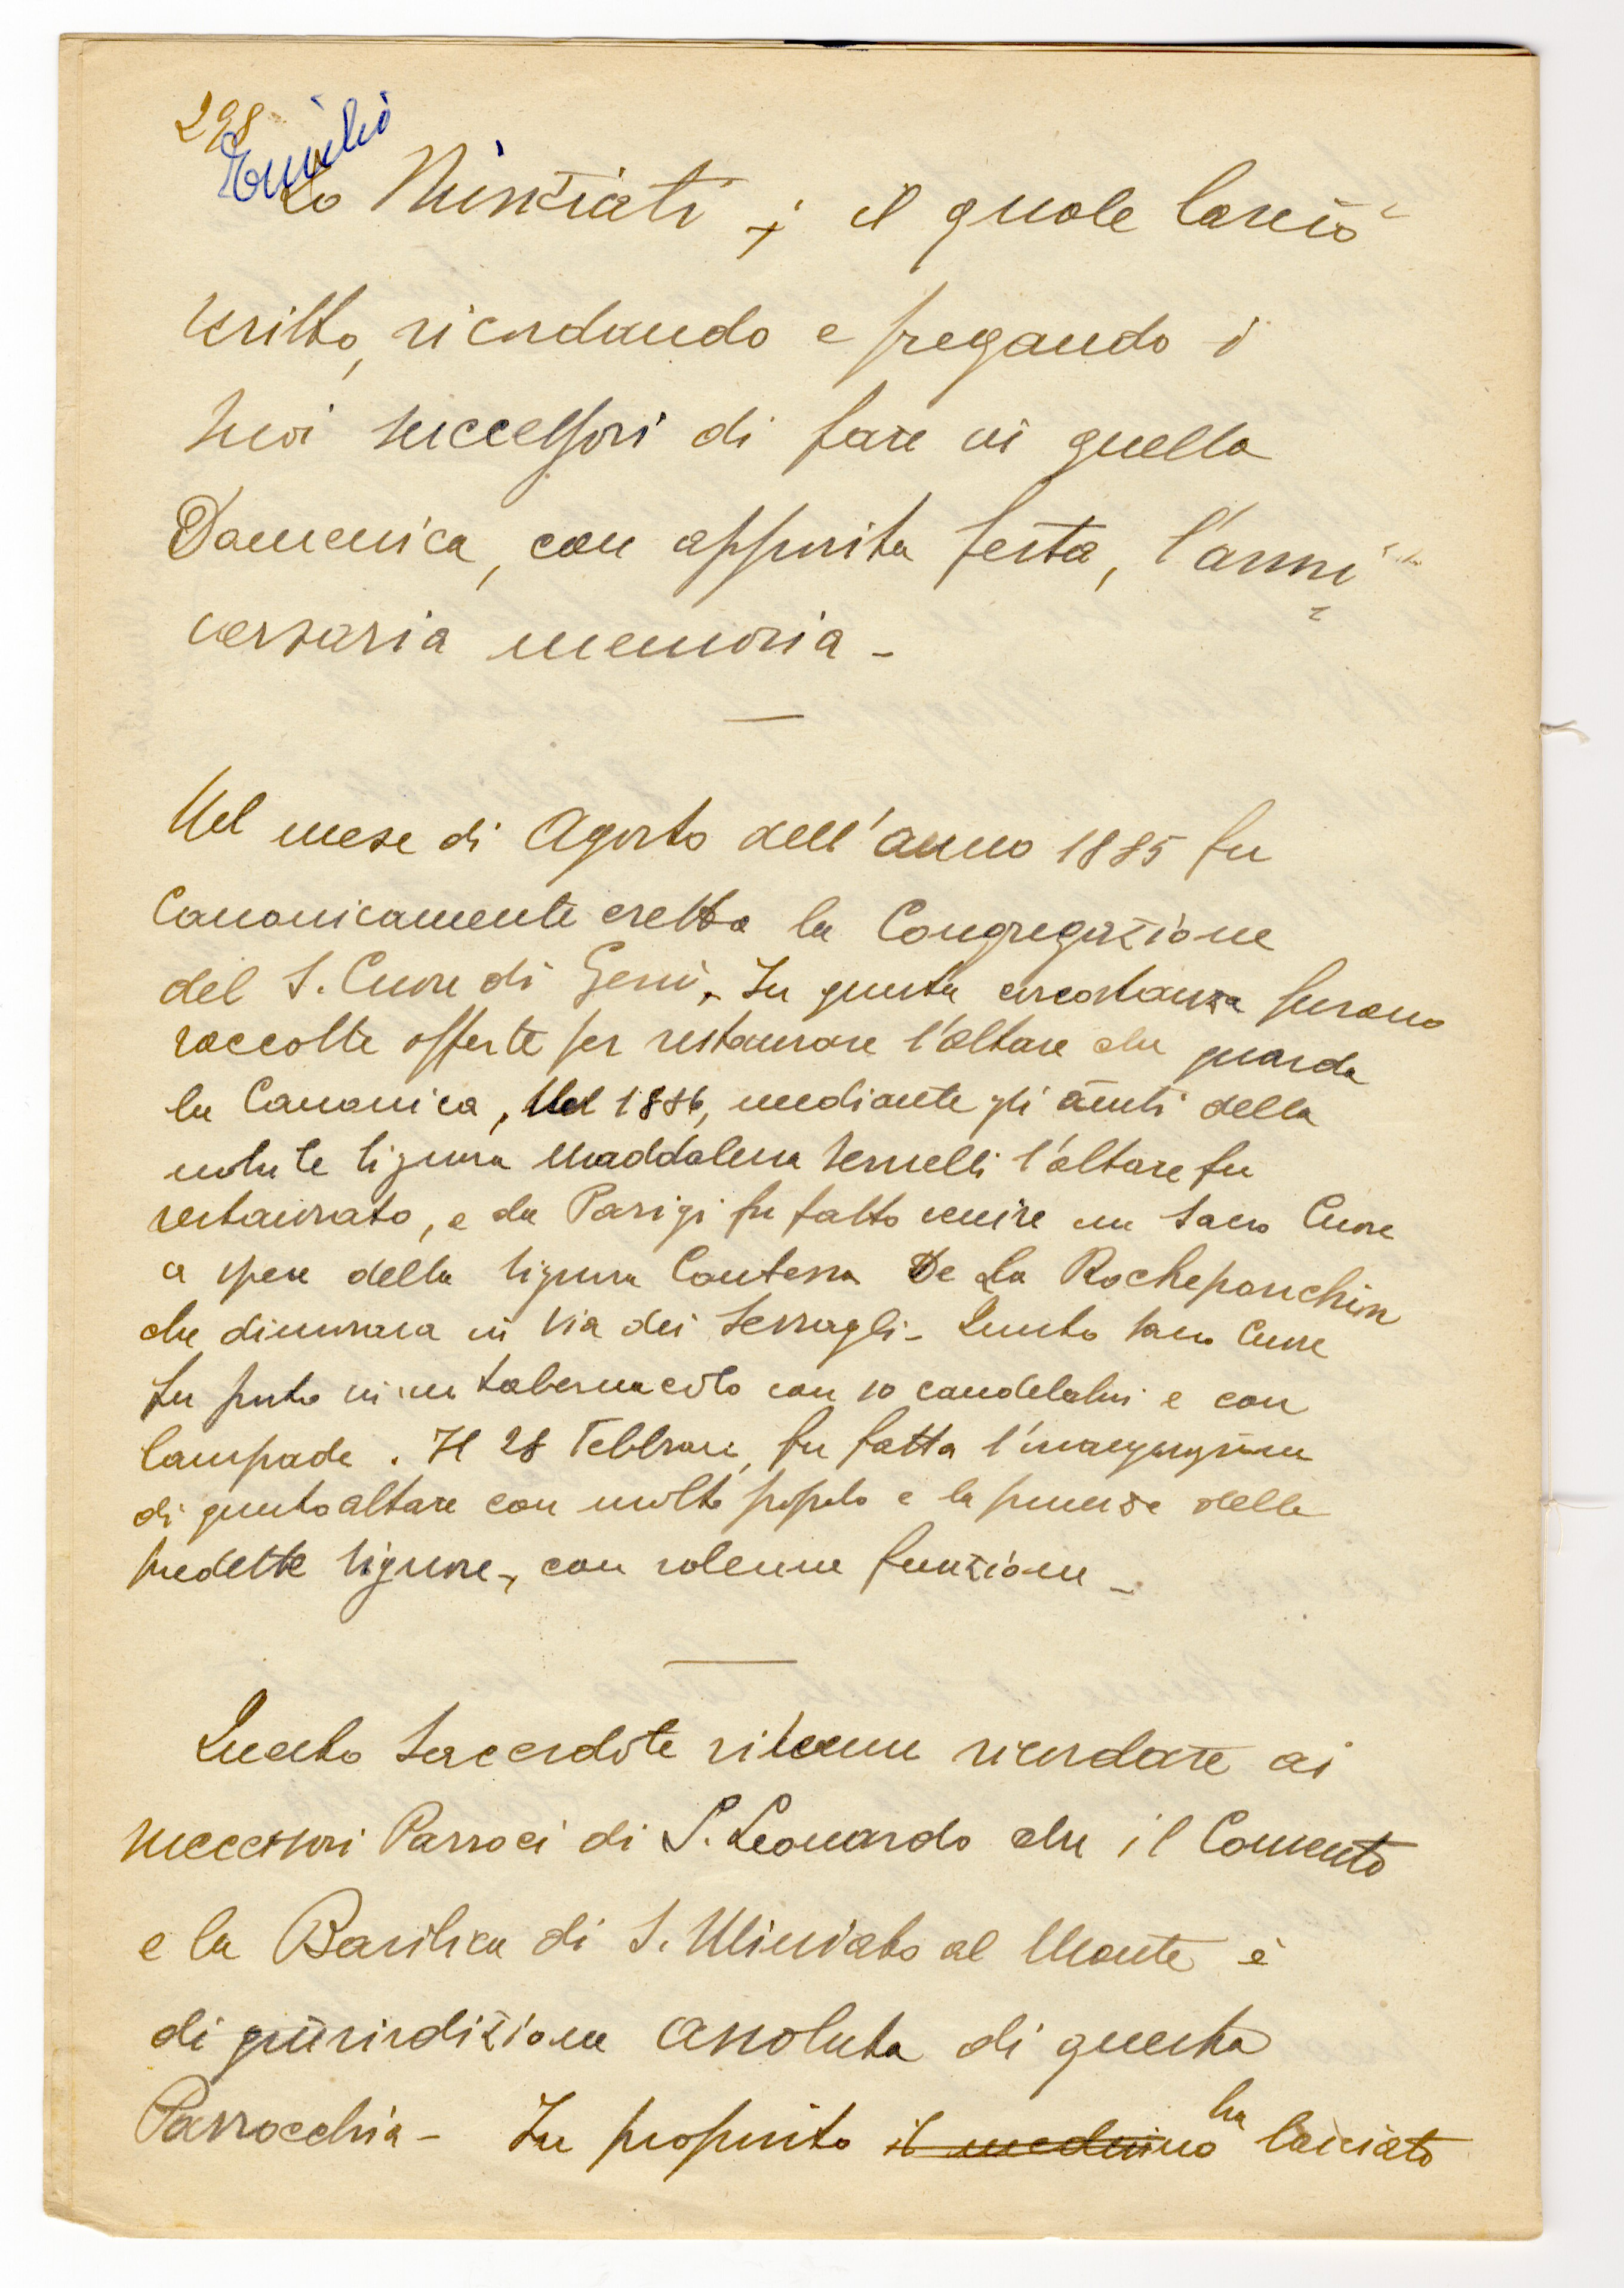 298
Emilio
lo Miniati; il quale lasciò
scritto, ricordando e pregando i
suoi successori di fare in quella
Domenica, con apposita festa, l'anni=
versaria memoria -
Nel mese di Agosto dell'anno 1885 fu
Canonicamente eretta la Congregazione
del S. Cuore di Gesù, In questa circostanza furono
raccolte offerte per restaurare l'altare che guarda
la Canonica, Nel 1886, mediante gli aiuti della
nobile Signora Maddalena l'altare fu
restaurato, e da Parigi fu fatto venire un Sacro Cuore
a spese della Signora Contessa De La
che dimorava in Via dei Serragli - Questo Sacro Cuore
fu posto in un tabernacolo con 10 candelabri e con
lampade. Il 28 Febbraio, fu fatta l'inaugurazione
di questo altare con molto popolo e la presenza delle
predette Signore, con solenne funzione -
Questo Sacerdote ritenne ricordare ai
successori Parroci di S. Leonardo che il Convento
e la Basilica di S. Miniato al Monte è
di giurisdizione assoluta di questa
Parrocchia - In proposito il medesimo ha lasciato